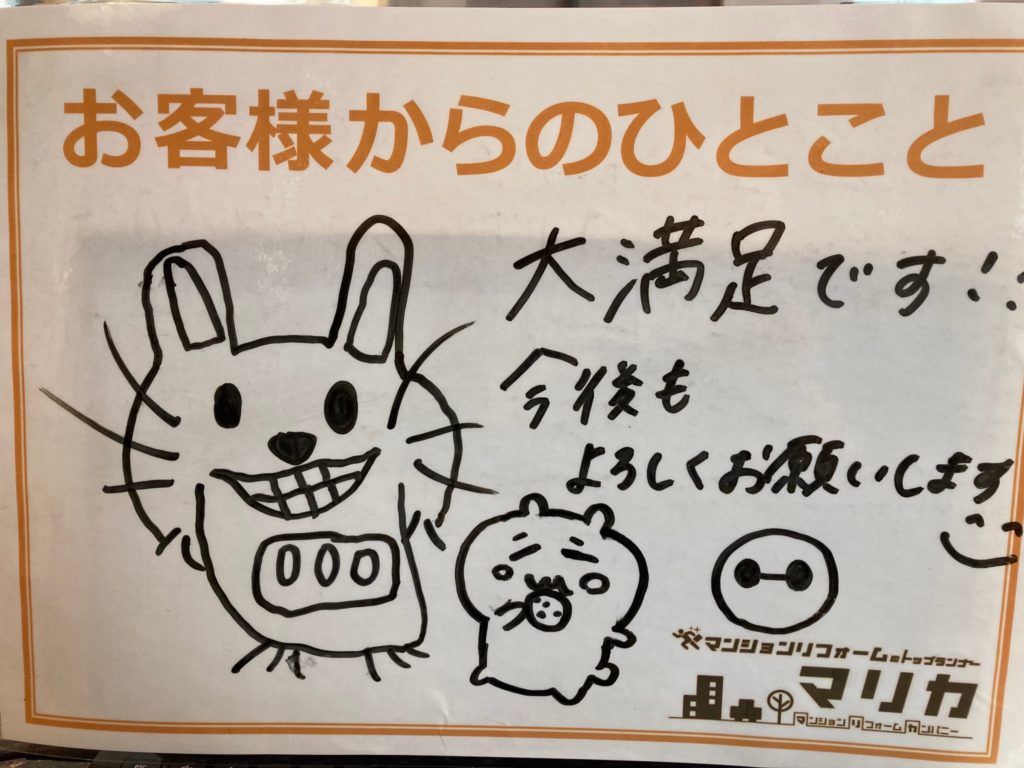 お客様からのひとこと
大満足です!!
今後も
よろしくお願いします
マンションリフォームのトップランナー
マリカ
マンションリフォームカンパニー